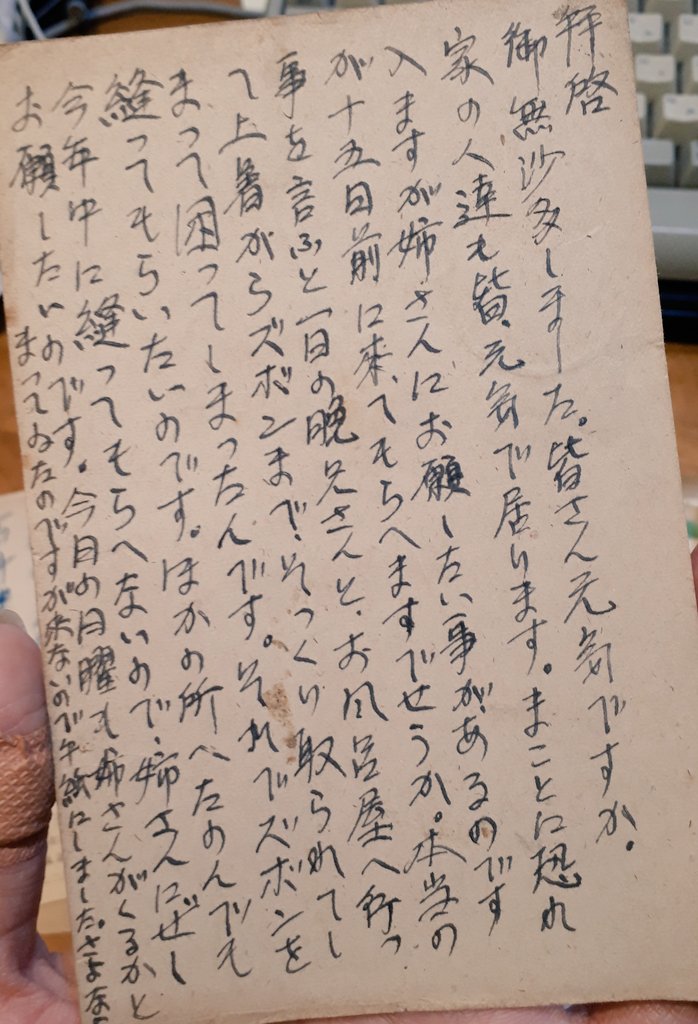 拝啓
御無沙多しました。皆さん元気ですか。
家の人達も皆、元気で居ります。まことに恐れ
入ますが姉さんにお願したい事があるのです
が十五日前に来てもらへますでせうか。本当の
事を言ふと一日の晩兄さんと、お風呂屋へ行っ
て上着からズボンまで、そっくり取られてし
まって困ってしまったんです。それでズボンを
縫ってもらいたいのです。ほかの所へたのんでも
今年中に縫ってもらへないので、姉さんにぜし
お願したいのです。今日の日曜も姉さんがくるかと
まってゐたのですが来ないので手紙にしました。さよな